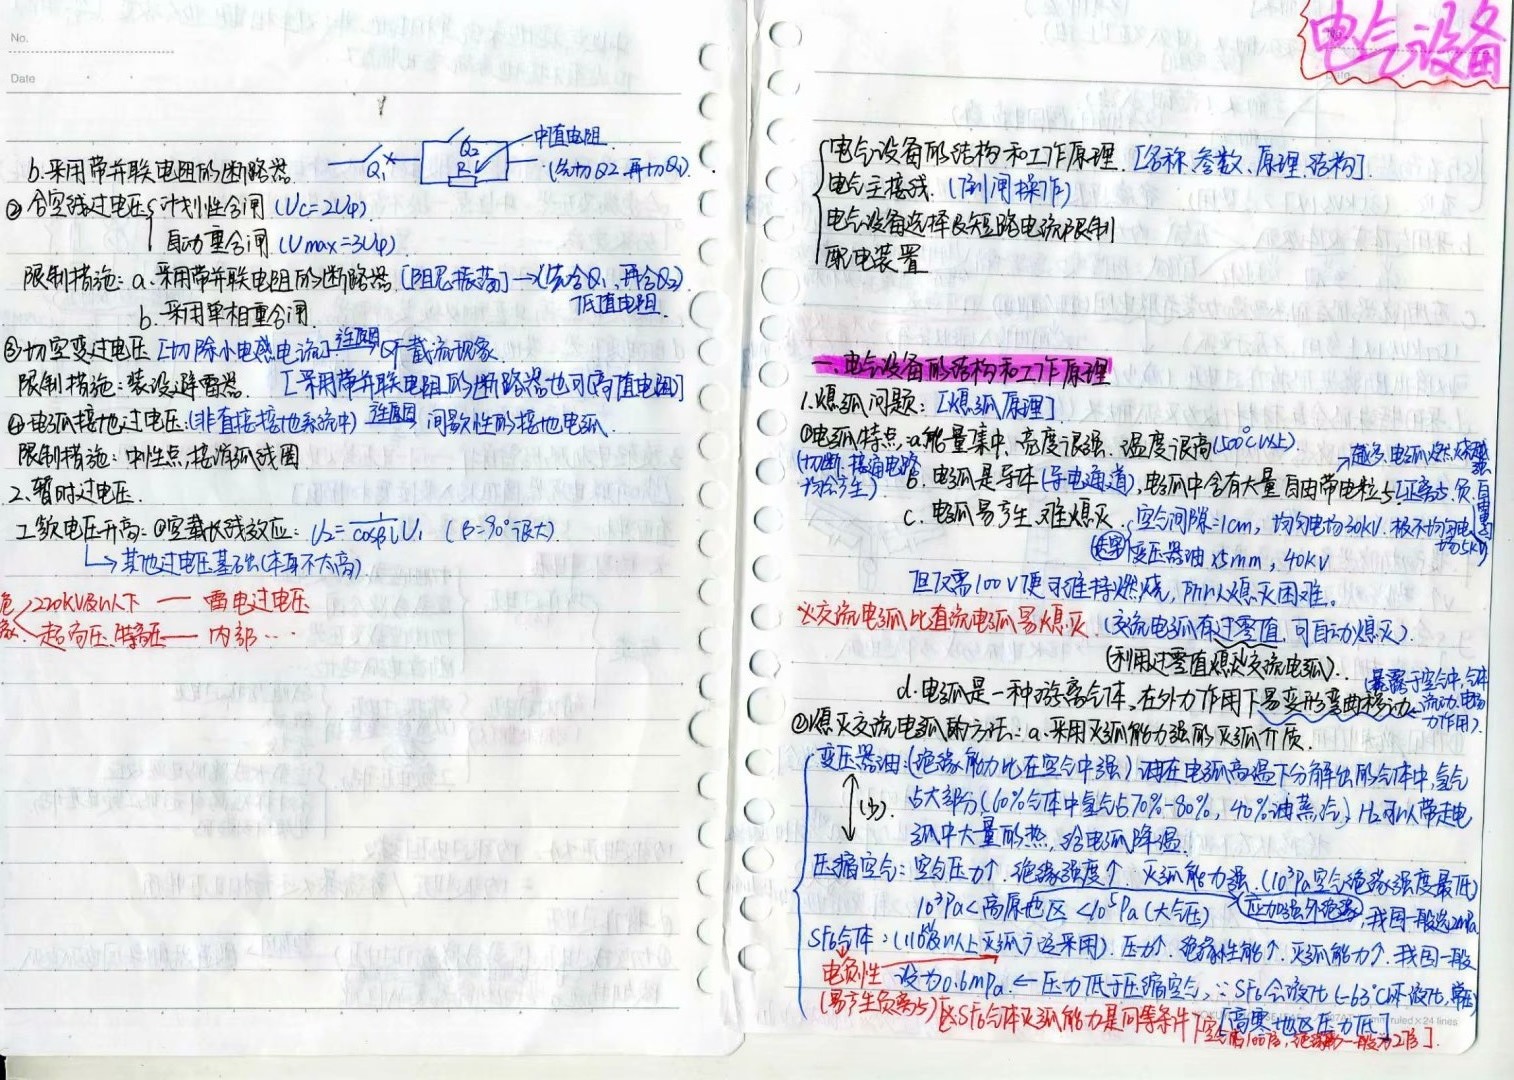 No.
Date
b.采用带并联电阻的断路器.
Q₁
Q₂
R
中值电阻
(先切Q2.再切Q₁).
②合空线过电压 计划性合闸 (Uc=2Uφ).
自动重合闸 (Umax=3Uφ).
限制措施: a.采用带并联电阻的断路器.[阻尼振荡]→(先合Q₁,再合Q₂).
低值电阻.
b.采用单相重合闸.
③切空变过电压 [切除小电感电流] 主要原因 QF截流现象.
限制措施:装设避雷器. [采用带并联电阻的断路器也可(高值电阻)]
④电弧接地过电压:(非直接接地系统中) 主要原因 间歇性的接地电弧.
限制措施:中性点接消弧线圈
2.暂时过电压.
工频电压升高:①空载长线效应: U₂=1/cosβl U₁ (β=90°很大).
→其他过电压基础(本身不太高)
220KV及以下 — 雷电过电压
超高压.特高压 — 内部…
电气设备
电气设备的结构和工作原理.[名称.参数.原理.结构].
电气主接线.(倒闸操作)
电气设备选择及短路电流限制
配电装置
一.电气设备的结构和工作原理
1.熄弧问题:[熄弧原理]
①电弧特点:a.能量集中.亮度很强.温度很高(5000℃以上).
(切断.接通电路均会产生)
→越多,电弧燃烧越强
b.电弧是导体(导电通道),电弧中含有大量自由带电粒子[正离子.负.自由电子]
c.电弧易产生.难熄灭.
空气间隙=1cm,均匀电场30KV.极不均匀电场5KV
(击穿) 变压器油×5mm,40KV
但仅需100V便可维持燃烧,所以熄灭困难.
※交流电弧比直流电弧易熄灭.(交流电弧有过零值,可自动熄灭).
(利用过零值熄灭交流电弧).
d.电弧是一种游离气体,在外力作用下易变形弯曲移动.
(暴露于空气中,气体流动.电场力作用).
②熄灭交流电弧的方法:a.采用灭弧能力强的灭弧介质.
变压器油:(绝缘能力比在空气中强)油在电弧高温下分解出的气体中,氢气
占大部分(60%气体中氢气占70%-80%,40%油蒸汽) H₂可以带走电
(少).
弧中大量的热,给电弧降温.
压缩空气:空气压力↑.绝缘强度↑.灭弧能力强.(10³Pa空气绝缘强度最低)
10³Pa<高原地区<10⁵Pa(大气压) 应加强外绝缘,我国一般选2mPa
SF6气体:(110KV及以上灭弧广泛采用).压力↑.绝缘性能↑.灭弧能力↑.我国一般
电负性 设为0.6mPa.←压力低于压缩空气,∵SF6会液化(-63℃才液化,常压)
(易产生负离子) 区:SF6气体灭弧能力是同等条件下空气的100倍,绝缘能力一般为2倍].
[高寒地区压力低]
ruled×24 lines